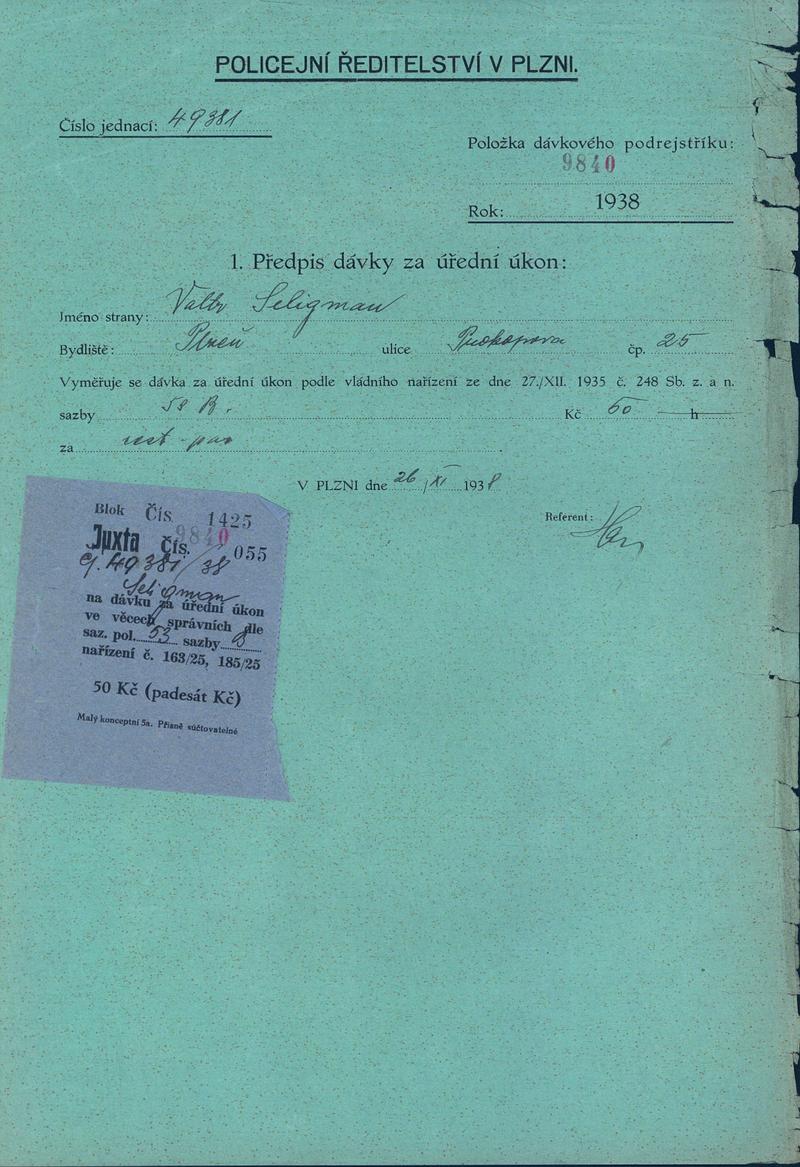 POLICEJNÍ ŘEDITELSTVÍ V PLZNI.
Číslo jednací: 49381
Položka dávkového podrejstříku:
9840
Rok: 1938
1. Předpis dávky za úřední úkon:
Jméno strany: Valtr Seligman
Bydliště: Plzeň ulice Prokopova čp. 25
Vyměřuje se dávka za úřední úkon podle vládního nařízení ze dne 27./XII. 1935 č. 248 Sb. z. a n.
sazby 53 B. Kč 50 h
za cest pas
V PLZNI dne 26/XI 1938
Referent:
Blok Čís. 1425
9840
Juxta Čís. 055
čj. 49381/38
Seligman
na dávku za úřední úkon
ve věcech správních dle
saz. pol. 53 sazby B
nařízení č. 163/25, 185/25
50 Kč (padesát Kč)
Malý konceptní 5a. Přísně súčtovatelné